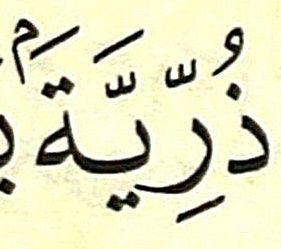 ذُرِّيَّةَۢ